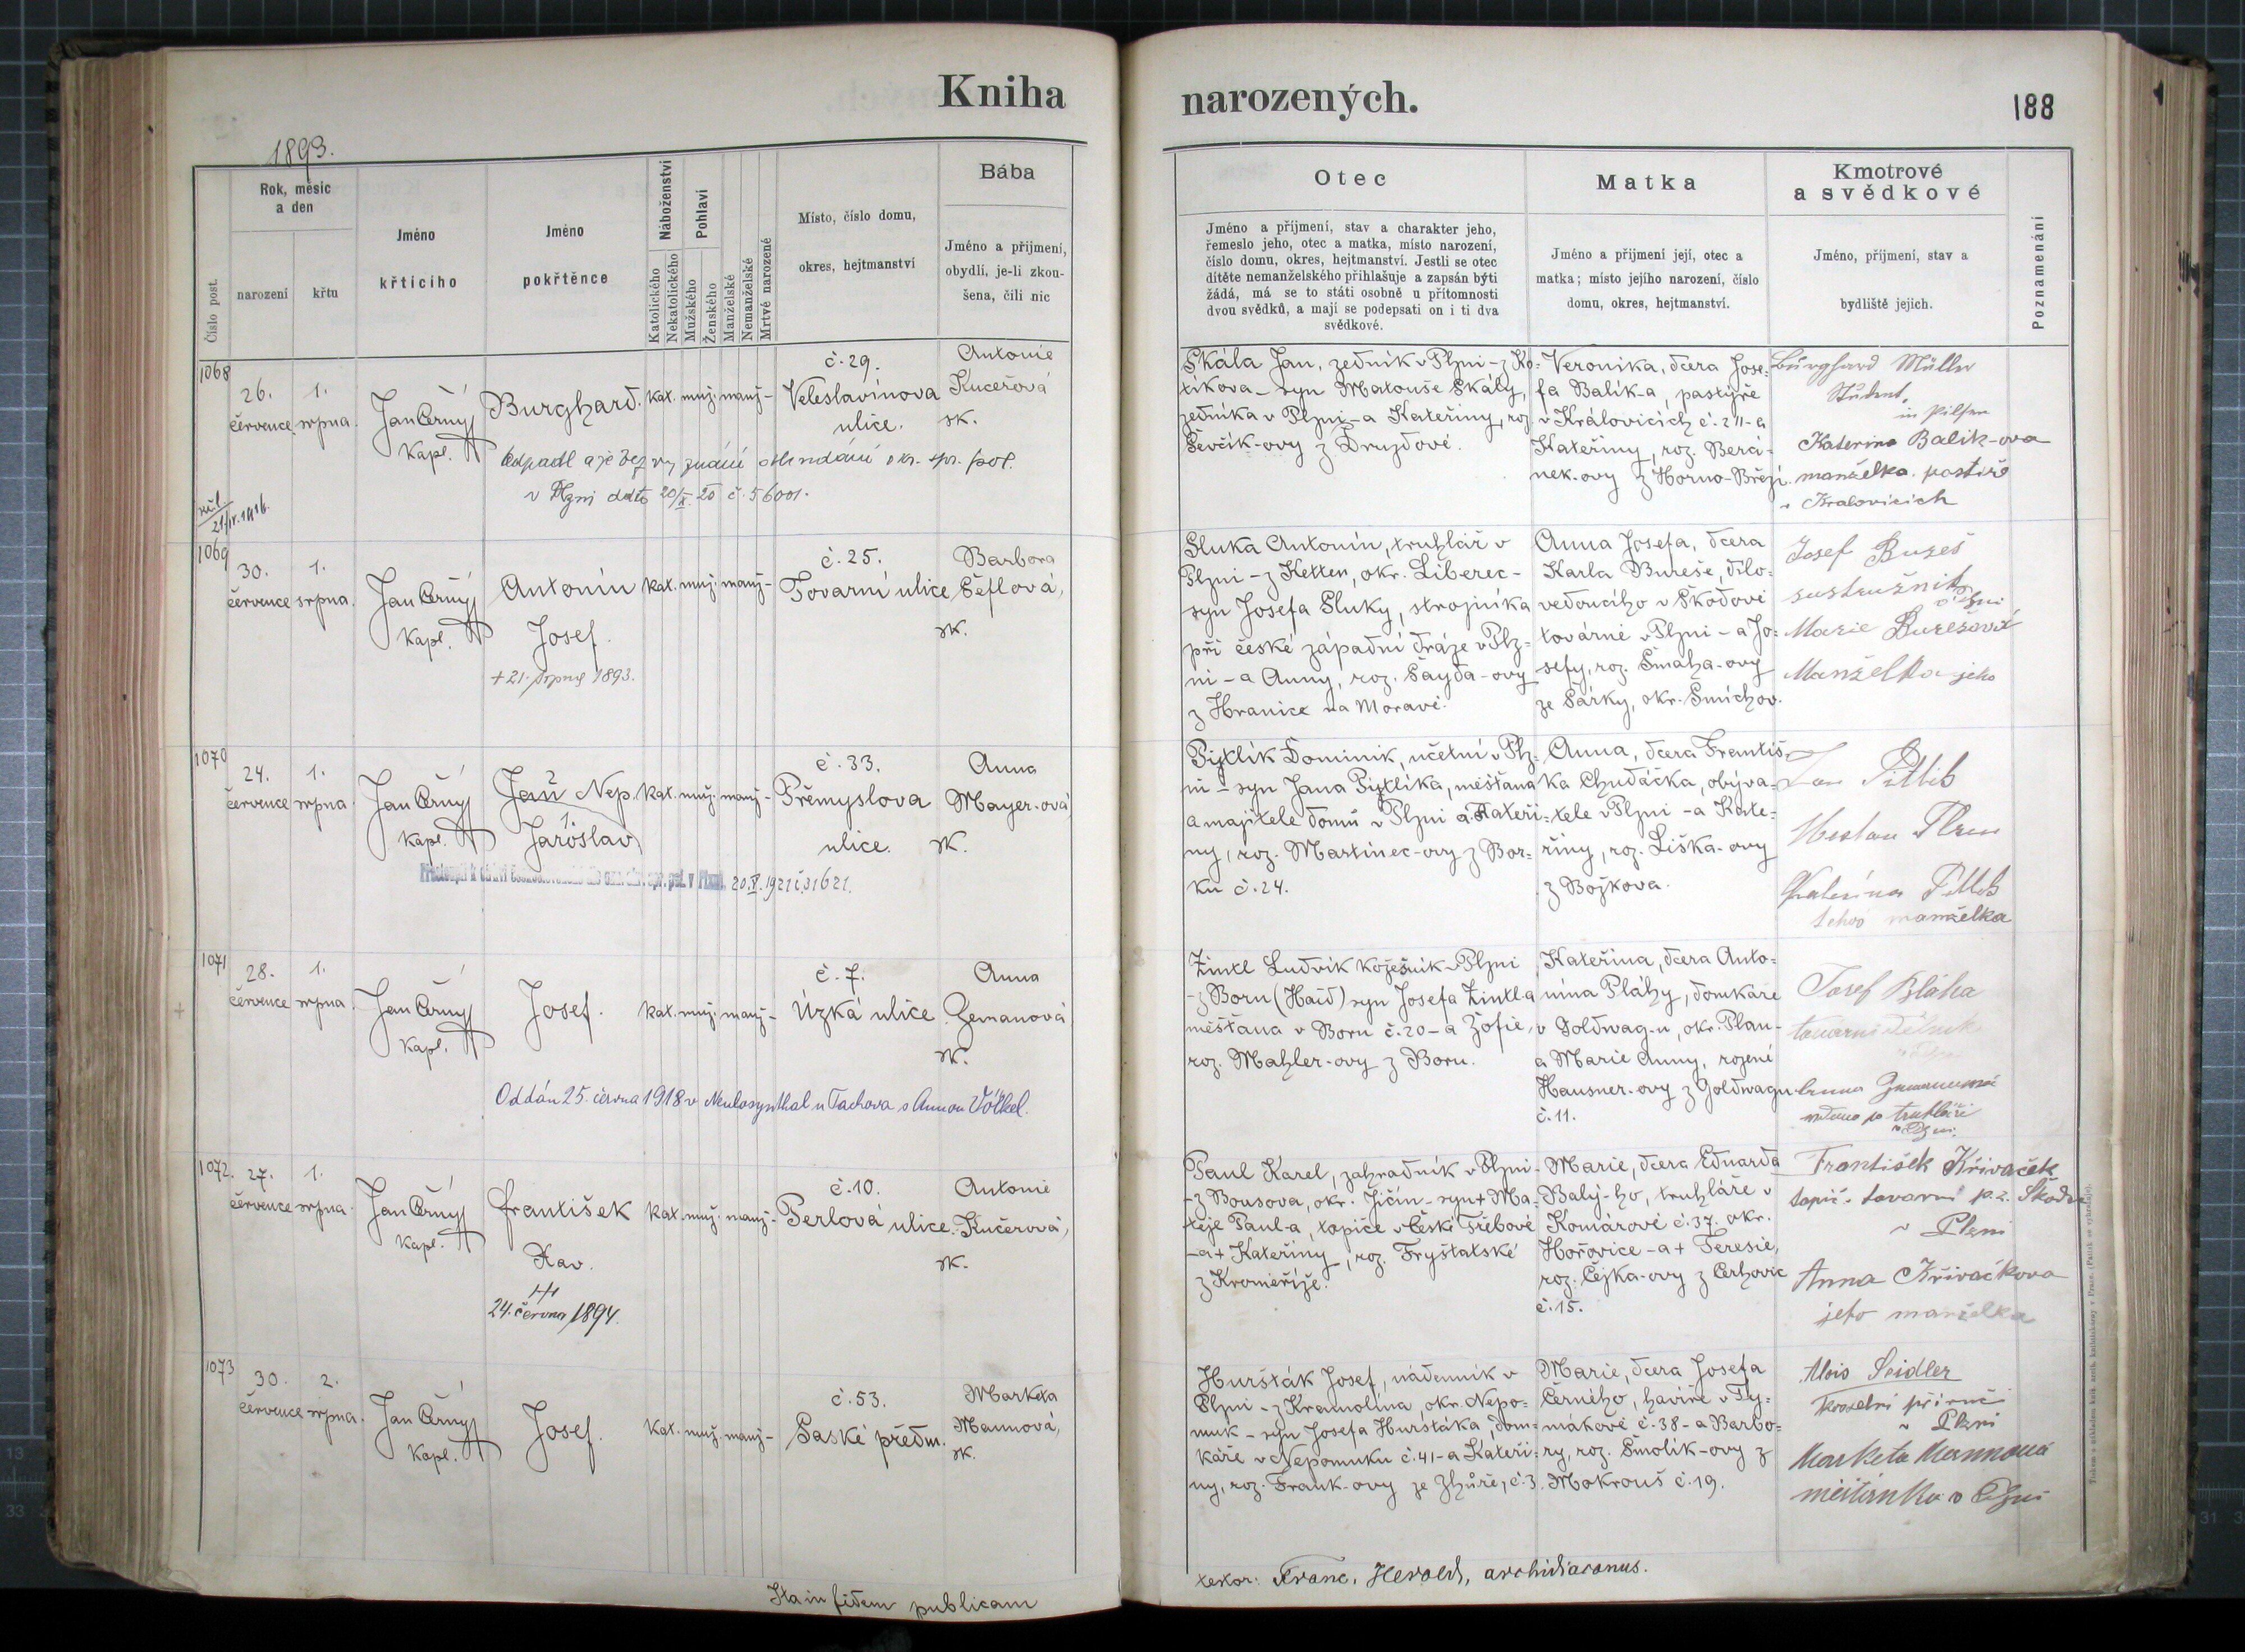 Kniha
1893.
Číslo post.
Rok, měsíc
a den
narození
křtu
Jméno
křtícího
Jméno
pokřtěnce
Náboženství
Katolického
Nekatolického
Pohlaví
Mužského
Ženského
Manželské
Nemanželské
Mrtvé narozené
Místo, číslo domu,
okres, hejtmanství
Bába
Jméno a příjmení,
obydlí, je-li zkou-
šena, čili nic
1068
26.
července
1.
srpna.
Jan Černý
kapl.
Burghard.
kat. muž. manž-
č. 29.
Veleslavínova
ulice.
Antonie
Kučerová
zk.
Odpadl a je bez vyznání
v Plzni ddto 20/X. 20 č. 56001.
21/IV. 1916.
1069
30.
července
1.
srpna.
Jan Černý
kapl.
Antonín
Josef.
+ 21. srpna 1893.
kat. muž. manž-
č. 25.
Tovární ulice
Barbora
Šeflová,
zk.
1070
24.
července
1.
srpna.
Jan Černý
kapl.
2
Jan Nep.
1.
Jaroslav
kat. muž. manž-
č. 33.
Přemyslova
ulice.
Anna
Mayer-ová,
zk.
20.V.1921 č.31621.
1071
28.
července
1.
srpna.
Jan Černý
kapl.
Josef.
kat. muž. manž-
č. 7.
Úzká ulice
Anna
Zemanová
zk.
Oddán 25. června 1918 v Neulosynthal u Tachova s Annou Völkel.
1072.
27.
července
1.
srpna.
Jan Černý
kapl.
František
Xav.
24. června 1894.
kat. muž. manž-
č. 10.
Perlová ulice.
Antonie
Kučerová,
zk.
1073
30.
července
2.
srpna.
Jan Černý
kapl.
Josef.
kat. muž. manž-
č. 53.
Saské předm.
Marketa
Mannová,
zk.
Ita in fidem publicam
narozených.
188
Otec
Jméno a příjmení, stav a charakter jeho,
řemeslo jeho, otec a matka, místo narození,
číslo domu, okres, hejtmanství. Jestli se otec
dítěte nemanželského přihlašuje a zapsán býti
žádá, má se to státi osobně u přítomnosti
dvou svědků, a mají se podepsati on i ti dva
svědkové.
Matka
Jméno a příjmení její, otec a
matka; místo jejího narození, číslo
domu, okres, hejtmanství.
Kmotrové
a svědkové
Jméno, příjmení, stav a
bydliště jejich.
Poznamenání
Skála Jan, zedník v Plzni - z Ko-
tíkova - syn Matouše Skály,
zedníka v Plzni - a Kateřiny, roz.
Ševčík-ovy z Druzdové.
Veronika, dcera Jose-
fa Balík-a, pastýře
v Královicích č. 211 - a
Kateřiny, roz. Berci-
nek-ovy z Horno-Břízi.
Burghard Müller
Student,
in Pilsen
Katerina Balik-ova
manželka pastíře
v Kralovicich
Sluka Antonín, truhlář v
Plzni - z Ketten, okr. Liberec -
syn Josefa Sluky, strojníka
při české západní dráze v Plz-
ni - a Anny, roz. Šayda-ovy
z Hranice na Moravě.
Anna Josefa, dcera
Karla Bureše, dílo-
vedoucího v Škodově
továrně v Plzni - a Jo-
sefy, roz. Šmaha-ovy
ze Šárky, okr. Smíchov.
Josef Bureš
sustružník
v Plzni
Marie Burešová
Manželka jeho
Pytlík Dominik, učetní v Plz-
ni - syn Jana Pytlíka, měšťana
a majitele domů v Plzni a Kateři-
ny, roz. Martinec-ovy z Bor-
ku č. 24.
Anna, dcera Františ-
ka Chudáčka, obýva-
tele v Plzni - a Kate-
řiny, roz. Liška-ovy
z Božkova.
Jan Pitlib
Katerina Pitlib
manželka
Zintl Ludvík kožešník v Plzni
- z Boru (Haid) syn Josefa Zintl-a
měšťana v Boru č. 20 - a Žofie,
roz. Mahler-ovy z Boru.
Kateřina, dcera Anto-
nína Pláhy, domkáře
v Goldwag-u, okr. Plan-
a Marie Anny, rozené
Hausner-ovy z Goldwagu
č. 11.
Josef Bláha
tovarni dělník
Anna Zemanová
vdova po truhláři
v Plzni.
Paul Karel, zahradník v Plzni -
- z Bousova, okr. Jičín - syn + Ma-
těje Paul-a, topiče v České Třebové
- a + Kateřiny, roz. Fryštatské
z Kroměříže.
Marie, dcera Eduarda
Balý-ho, truhláře v
Komárově č. 37. okr.
Hořovice - a + Teresie,
roz. Čejka-ovy z Cerhovic
č. 15.
František Křivaček
topič. tovarni p. z. Škoda
v Plzni
Anna Křivačkova
jeho manželka
Huršták Josef, nádenník v
Plzni - z Kramolína, okr. Nepo-
muk - syn Josefa Hurštáka, dom-
káře v Nepomuku č. 41 - a Kateři-
ny, roz. Frank-ovy ze Zhůře, č. 3.
Marie, dcera Josefa
Černého, havíře v Ty-
mákově č. 38 - a Barbo-
ry, roz. Smolík-ovy z
Mokrouš č. 19.
Alois Seidler
v Plzni
Marketa Mannová
měštanka v Plzni
Franc. Herold, archidiaconus.